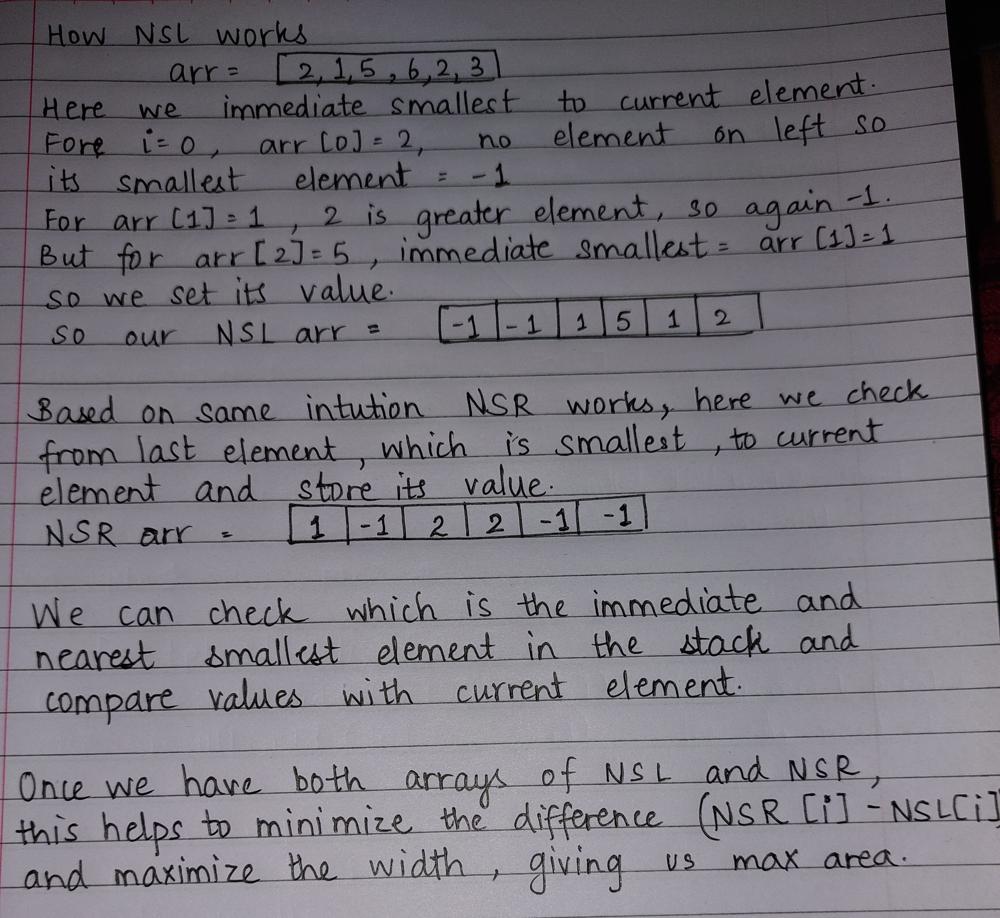 How NSL works
arr = [2,1,5,6,2,3]
Here we immediate smallest to current element.
Fore i=0, arr[0]=2, no element on left so
its smallest element = -1
For arr[1]=1, 2 is greater element, so again -1.
But for arr[2]=5, immediate smallest = arr[1]=1
so we set its value.
so our NSL arr = [-1|-1|1|5|1|2]
Based on same intution NSR works, here we check
from last element, which is smallest, to current
element and store its value.
NSR arr = [1|-1|2|2|-1|-1]
We can check which is the immediate and
nearest smallest element in the stack and
compare values with current element.
Once we have both arrays of NSL and NSR,
this helps to minimize the difference (NSR[i]-NSL[i]
and maximize the width, giving us max area.